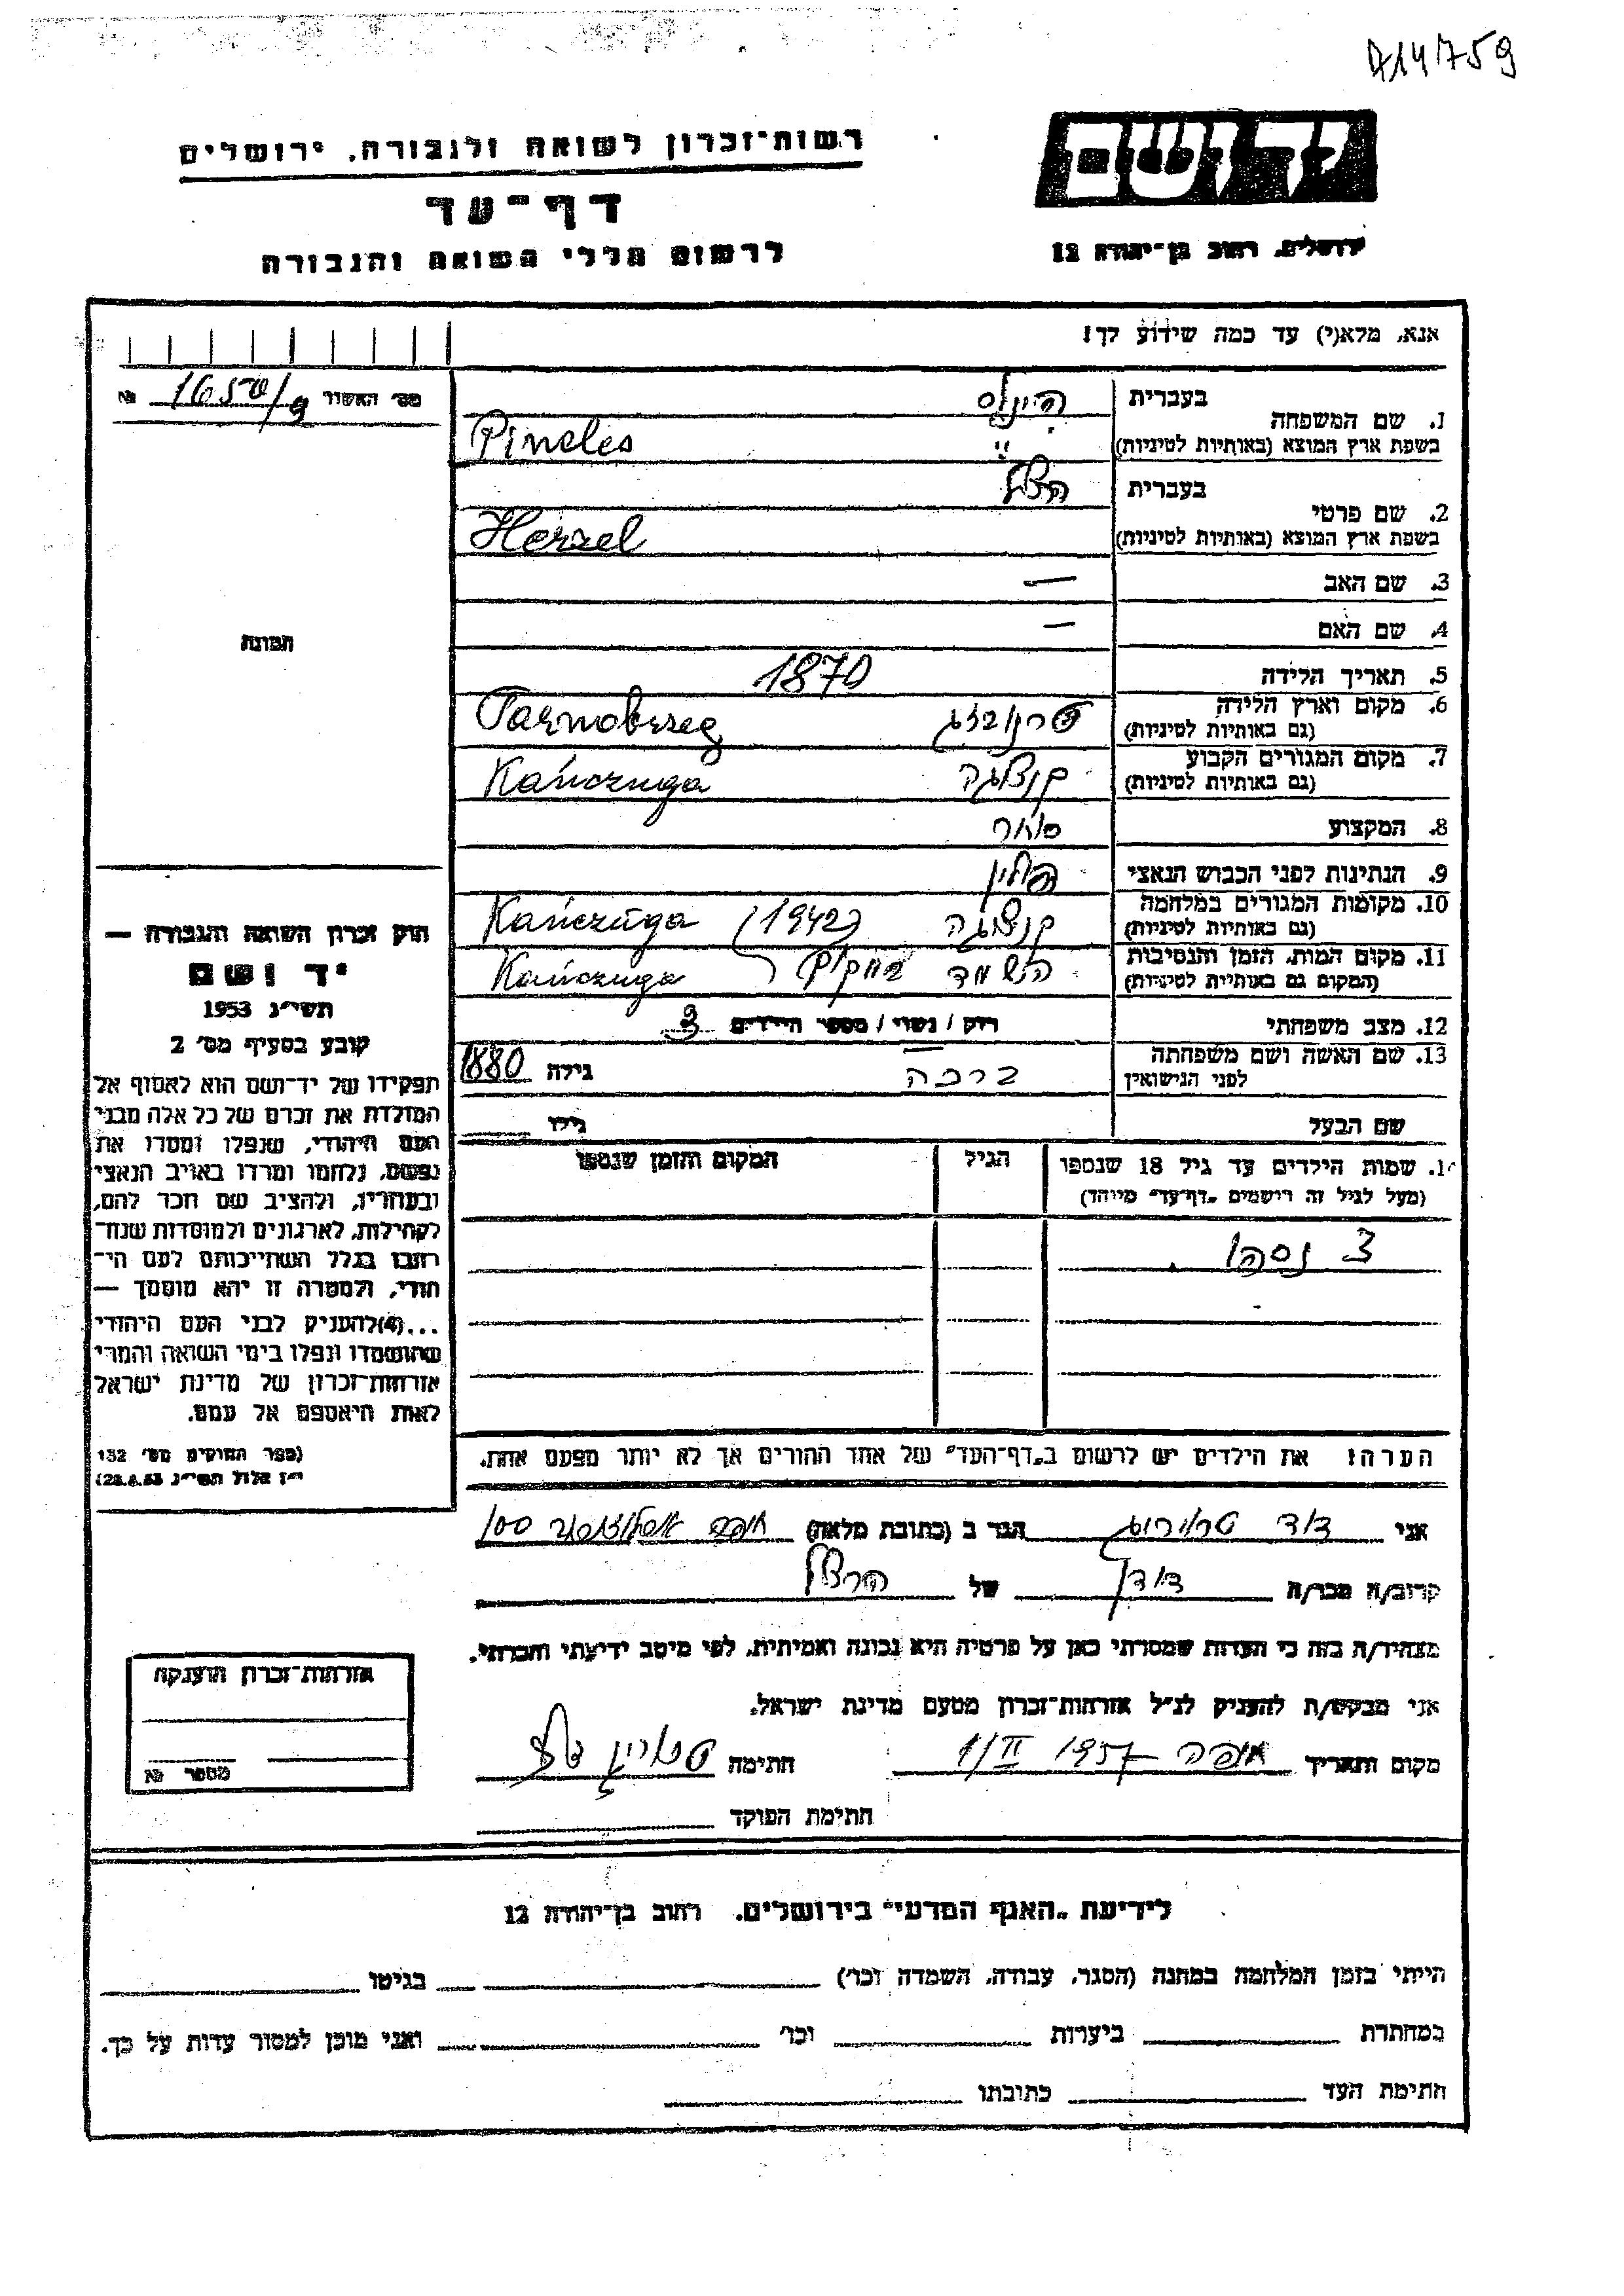 714759
רשות־זכרון לשואה ולגבורה, ירושלים
יד ושם
דף־עד
לרשום חללי השואה והגבורה
ירושלים, רחוב בן־יהודה 12
אנא, מלא(י) עד כמה שידוע לך!
מס׳ האשור 16570/9 №
1. שם המשפחה
בעברית פינלס
בשפת ארץ המוצא (באותיות לטיניות) Pineles
2. שם פרטי
בעברית הרצל
בשפת ארץ המוצא (באותיות לטיניות) Herzel
3. שם האב —
4. שם האם —
תמונה
5. תאריך הלידה 1870
6. מקום וארץ הלידה (גם באותיות לטיניות) טרנוברזג Tarnobrzeg
7. מקום המגורים הקבוע (גם באותיות לטיניות) קנצוגה Kańczuga
8. המקצוע סוחר
9. הנתינות לפני הכבוש הנאצי פולין
10. מקומות המגורים במלחמה (גם באותיות לטיניות) קנצוגה (1942) Kańczuga
11. מקום המות, הזמן והנסיבות (המקום גם באותיות לטיניות) הושמד במקום Kańczuga
12. מצב משפחתי רוק / נשוי / מספר הילדים 3
13. שם האשה ושם משפחתה לפני הנישואין ברכה גילה 1880
שם הבעל גילו
14. שמות הילדים עד גיל 18 שנספו
(מעל לגיל זה רישומים „דף־עד״ מיוחד)
הגיל
המקום והזמן שנספו
3 נספו
חוק זכרון השואה והגבורה —
יד ושם
תשי״ג 1953
קובע בסעיף מס׳ 2
תפקידו של יד־ושם הוא לאסוף אל
המולדת את זכרם של כל אלה מבני
העם היהודי, שנפלו ומסרו את
נפשם, נלחמו ומרדו באויב הנאצי
ובעוזריו, ולהציב שם וזכר להם,
לקהילות, לארגונים ולמוסדות שנח־
רבו בגלל השתייכותם לעם הי־
הודי, ולמטרה זו יהא מוסמך —
...(4)להעניק לבני העם היהודי
שהושמדו ונפלו בימי השואה והמרי
אזרחות־זכרון של מדינת ישראל
לאות היאספם אל עמם.
(ספר החוקים מס׳ 132
י״ז אלול תשי״ג 28.8.53)
הערה! את הילדים יש לרשום ב„דף־העד״ של אחד ההורים אך לא יותר מפעם אחת.
אני דוד הגר ב (כתובת מלאה) חיפה 100
קרוב/ה מכר/ה דודן של הרצל
מצהיר/ה בזה כי העדות שמסרתי כאן על פרטיה היא נכונה ואמיתית, לפי מיטב ידיעתי והכרתי.
אני מבקש/ת להעניק לנ״ל אזרחות־זכרון מטעם מדינת ישראל.
מקום ותאריך חיפה 1/II 1957 חתימה
חתימת הפוקד
אזרחות־זכרון הוענקה
מספר №
לידיעת „האגף המדעי״ בירושלים, רחוב בן־יהודה 12
הייתי בזמן המלחמה במחנה (הסגר, עבודה, השמדה וכו׳) בגיטו
במחתרת ביערות וכו׳ ואני מוכן למסור עדות על כך.
חתימת העד כתובתו